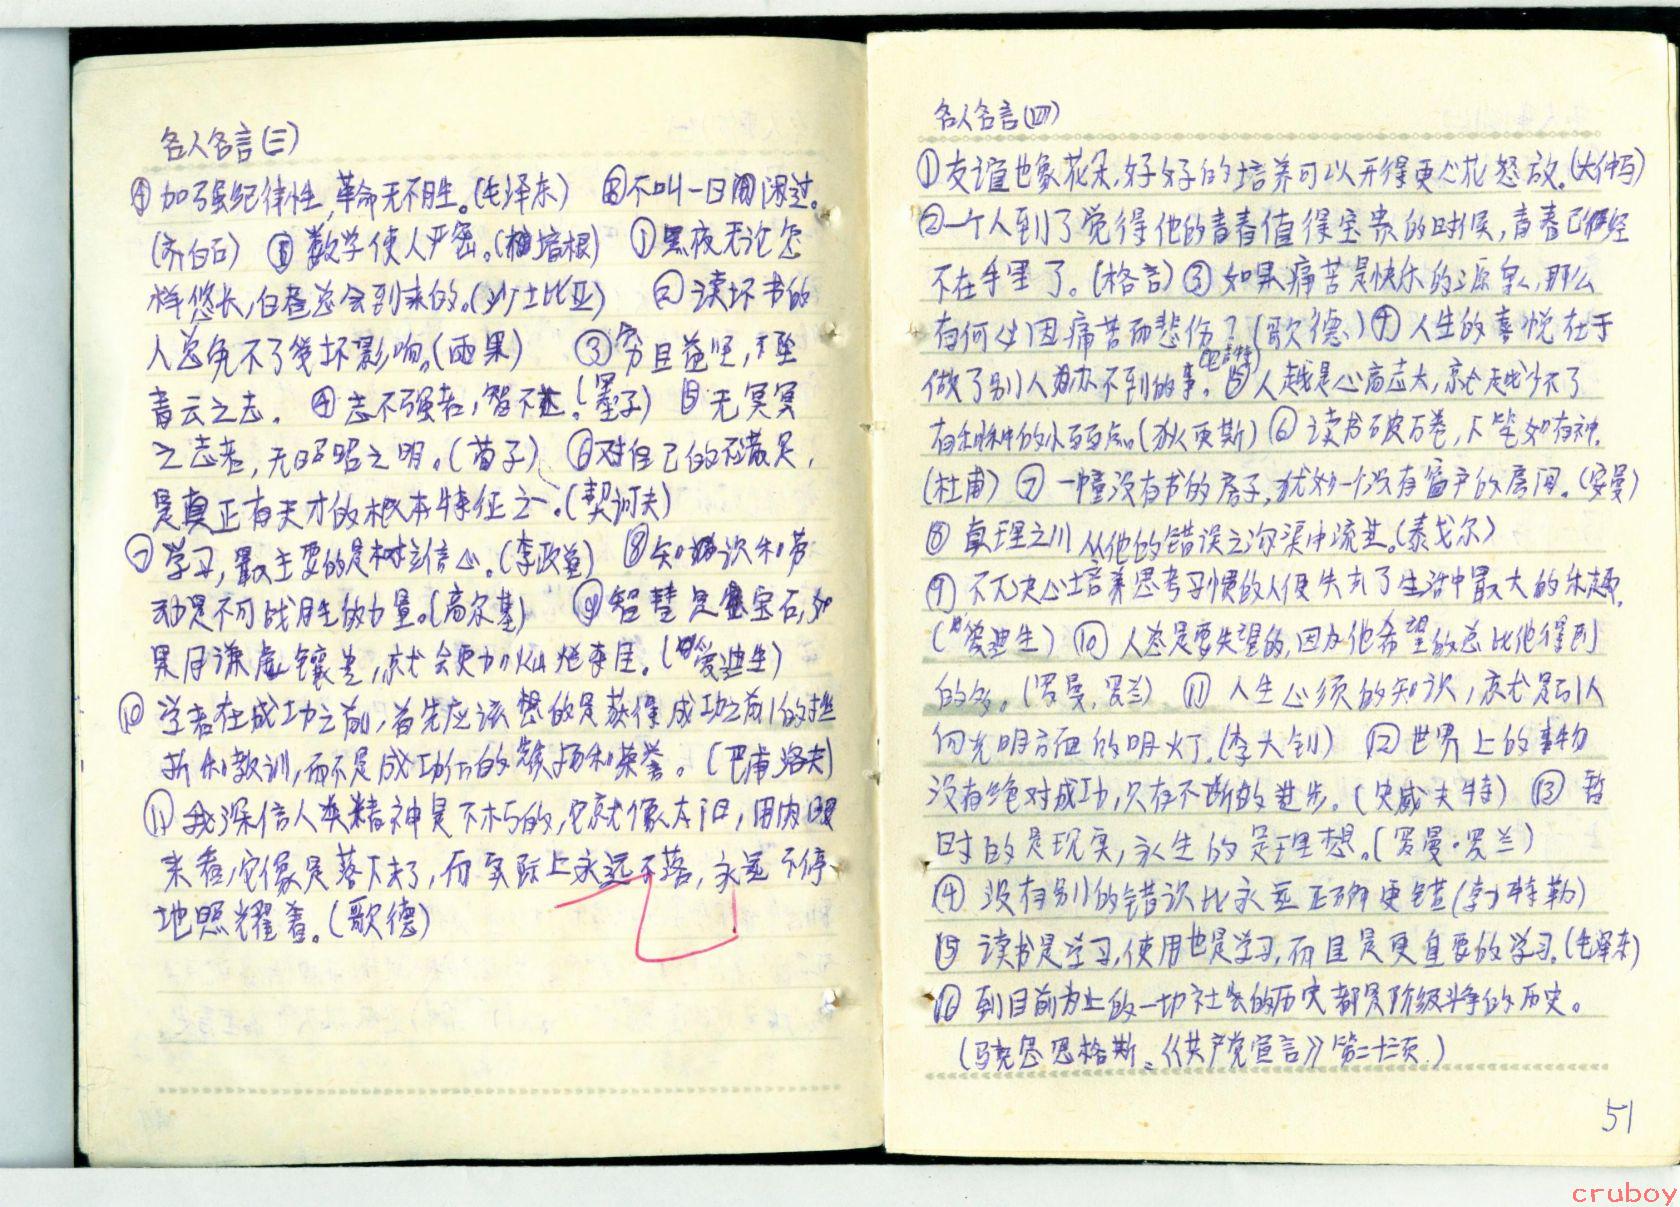 名人名言(三)
④加强纪律性,革命无不胜。(毛泽东) 不叫一日闲过。
(齐白石) 数学使人严密。(培根) ①黑夜无论怎
样悠长,白昼总会到来的。(沙士比亚) ②读坏书的
人总免不了受坏影响。(雨果) ③穷且益坚,不坠
青云之志。 ④志不强者,智不达。(墨子) ⑤无冥冥
之志者,无昭昭之明。(荀子) ⑥对自己的不满足,
是真正有天才的根本特征之一。(契诃夫)
⑦学习,最主要的是树立信心。(李政道) ⑧知识和劳
动是不可战胜的力量。(高尔基) ⑨智慧是宝石,如
果用谦虚镶边,就会更加灿烂夺目。(爱迪生)
⑩学者在成功之前,首先应该想的是获得成功之前的挫
折和教训,而不是成功后的赞扬和荣誉。(巴甫洛夫)
⑪我深信人类精神是不朽的,它就像太阳,用肉眼
来看,它像是落下去了,而实际上永远不落,永远不停
地照耀着。(歌德)
名人名言(四)
①友谊也象花朵,好好的培养可以开得更心花怒放。(大仲马)
②一个人到了觉得他的青春值得宝贵的时候,青春已经
不在手里了。(格言)③如果痛苦是快乐的源泉,那么
有何必因痛苦而悲伤?(歌德)④人生的喜悦在于
做了别人办不到的事。⑤人越是心高志大,就越少不了
有种种的小弱点。(狄更斯)⑥读书破万卷,下笔如有神。
(杜甫)⑦一幢没有书的房子,犹如一个没有窗户的房间。(安曼)
⑧真理之川从他的错误之沟渠中流过。(泰戈尔)
⑨不下决心培养思考习惯的人便失去了生活中最大的乐趣。
(爱迪生)⑩人总是要失望的,因为他希望的总比他得到
的多。(罗曼.罗兰)⑪人生必须的知识,就是引人
向光明方面的明灯。(李大钊)⑫世界上的事物
没有绝对成功,只有不断的进步。(史威夫特)⑬暂
时的是现实,永生的是理想。(罗曼·罗兰)
⑭没有别的错误比永远正确更错(勃特勒)
⑮读书是学习,使用也是学习,而且是更重要的学习。(毛泽东)
⑯到目前为止的一切社会的历史都是阶级斗争的历史。
(马克思恩格斯、《共产党宣言》第二十三页)
51
cruboy